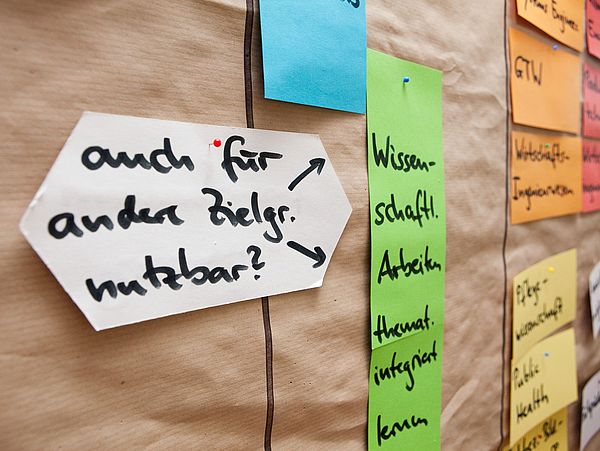 auch für
andere Zielgr.
nutzbar?
Wissen-
schaftl.
Arbeiten
themat.
integriert
lernen
GTW
Wirtschafts-
Ingenieurwesen
Pflege-
wissenschaft
Public
Health